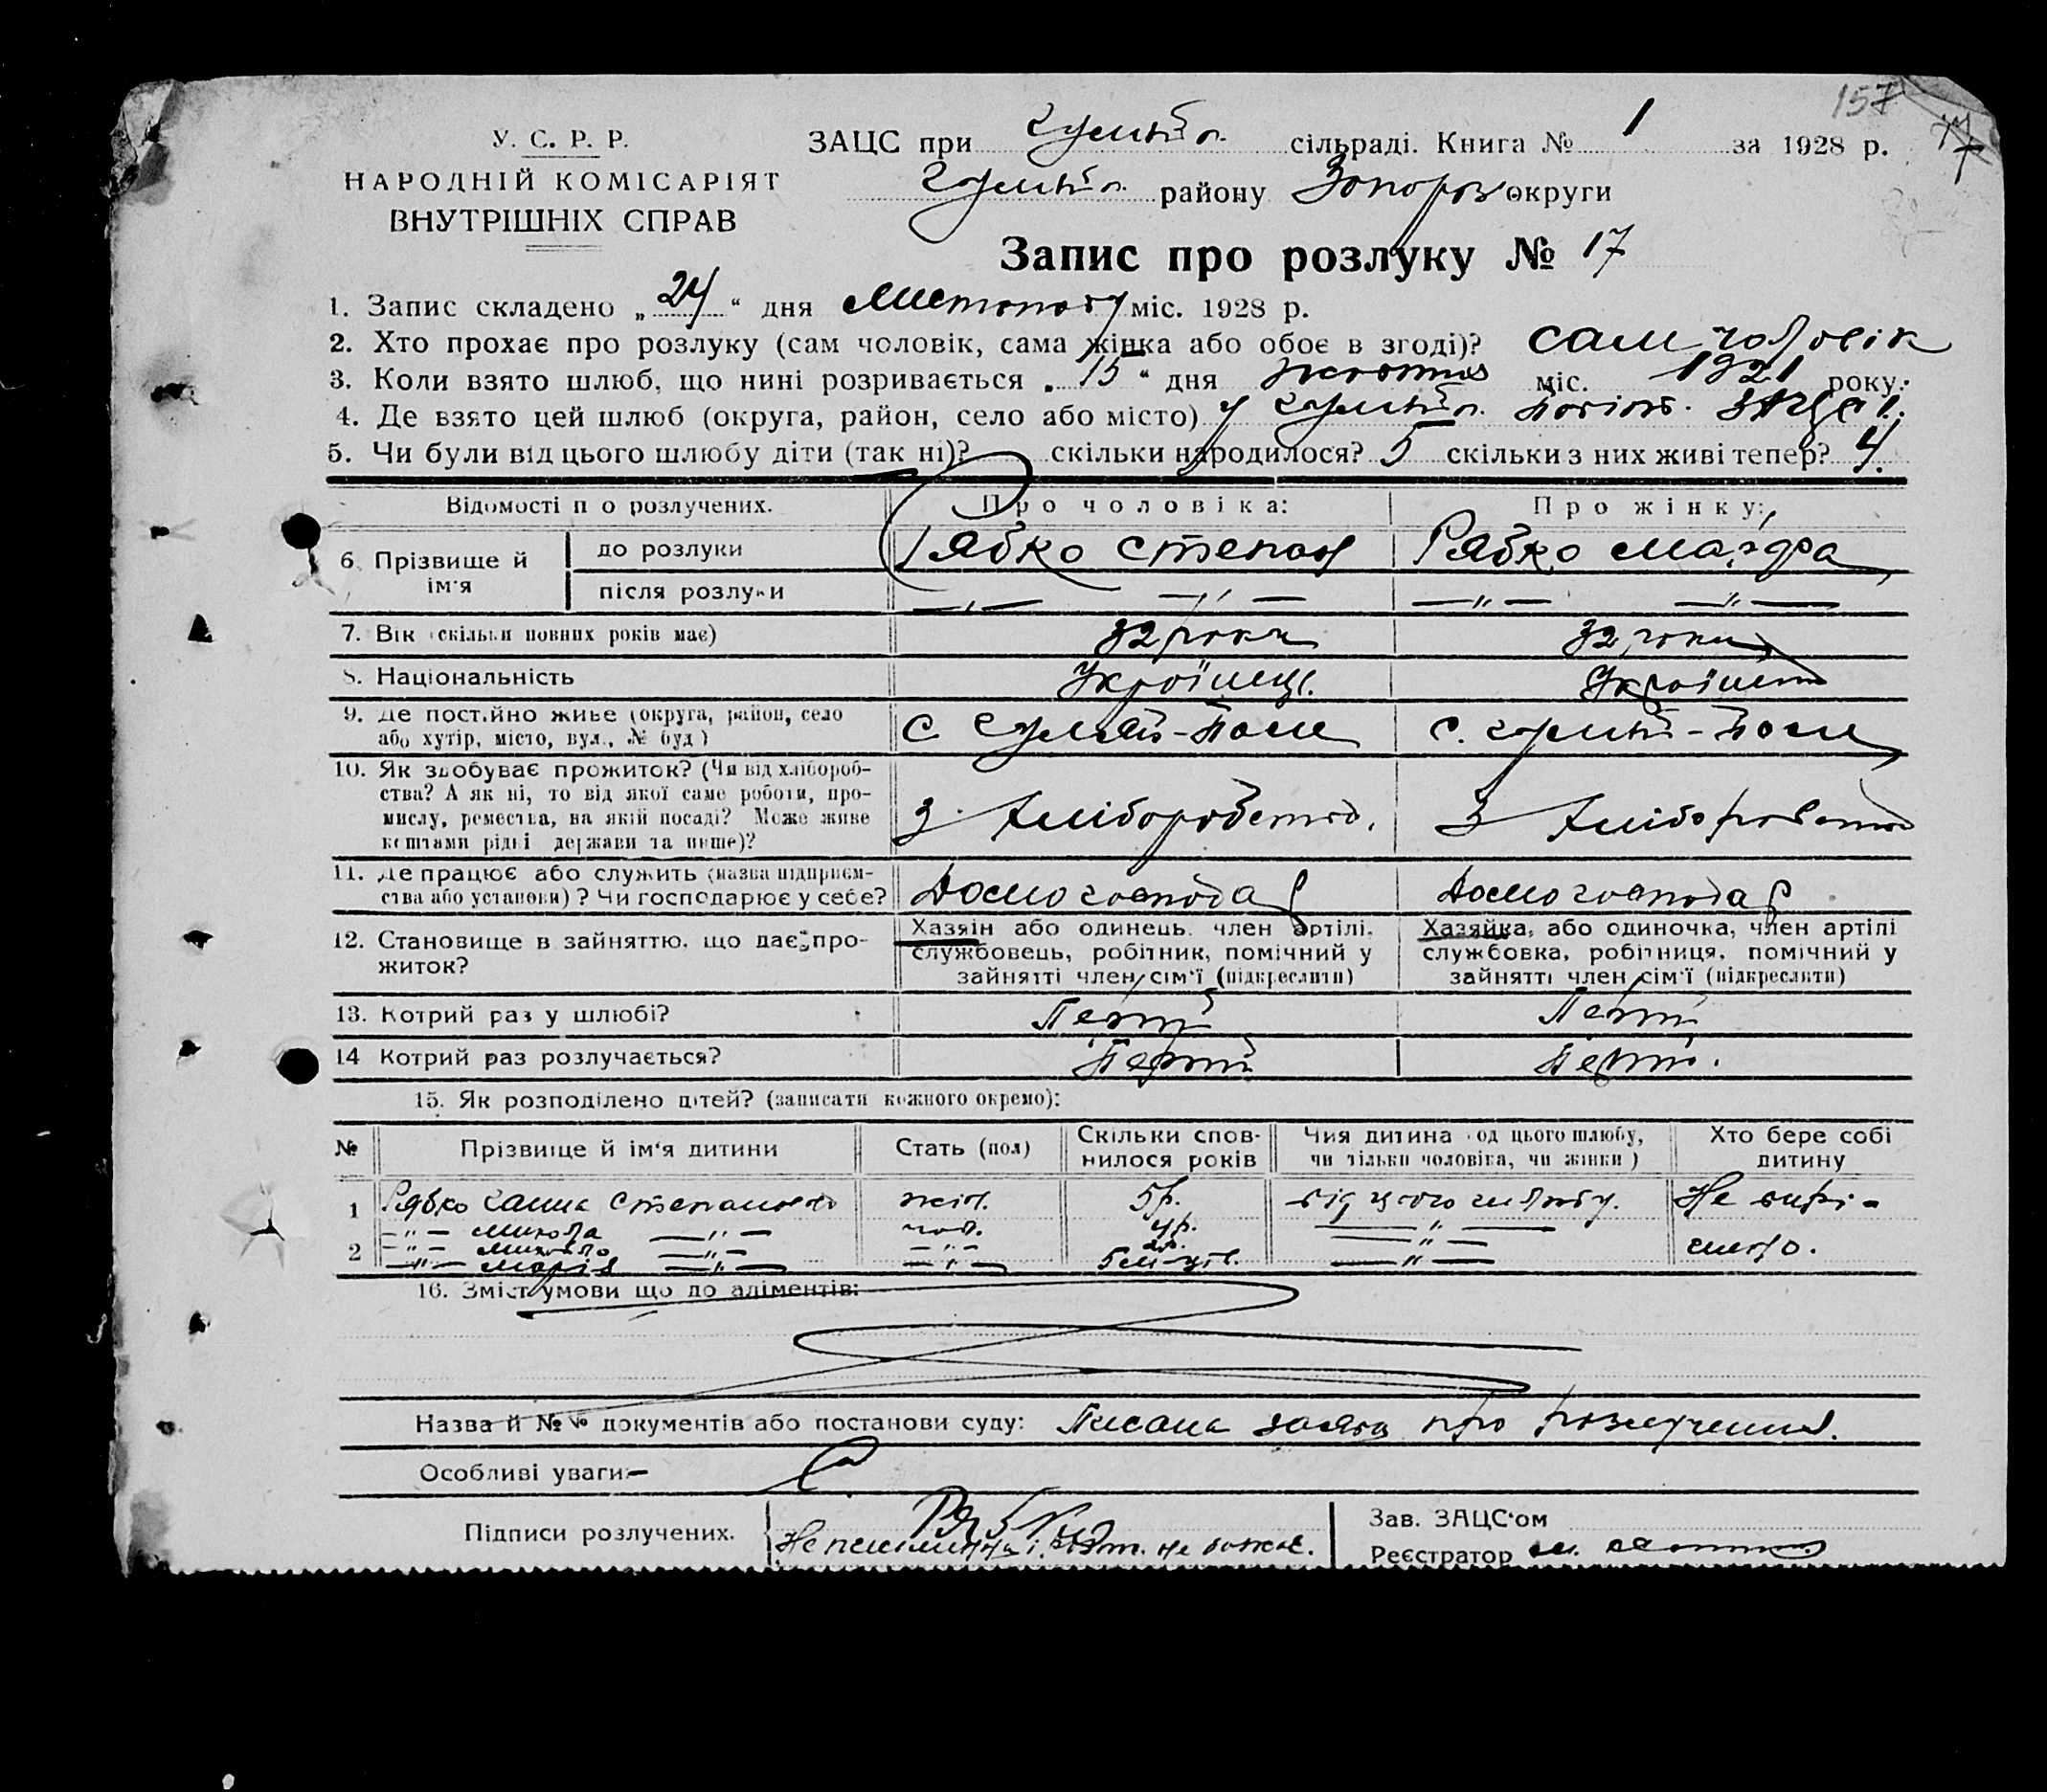 157
У. С. Р. Р.
НАРОДНІЙ КОМІСАРІЯТ
ВНУТРІШНІХ СПРАВ
ЗАЦС при Гуляйп. сільраді. Книга № 1 за 1928 р.
Гуляйп. району Запоріз округи
Запис про розлуку № 17
1. Запис складено „24“ дня Листопаду міс. 1928 р.
2. Хто прохає про розлуку (сам чоловік, сама жінка або обоє в згоді)? сам чоловік
3. Коли взято шлюб, що нині розривається „15“ дня жовтня міс. 1921 року.
4. Де взято цей шлюб (округа, район, село або місто) у Гуляйп. ЗАЦСі
5. Чи були від цього шлюбу діти (так ні)? скільки народилося? 5 скільки з них живі тепер? 4.
Відомості п о розлучених. Про чоловіка: Про жінку:
6. Прізвище й ім'я до розлуки Рябко Степан Рябко Мафра
після розлуки —„— —„— —„— —„—
7. Вік (скільки повних років має) 32 роки 32 роки
8. Національність Українець. Українка
9. Де постійно живе (округа, район, село
або хутір, місто, вул., № буд) с. Гуляй-Поле с. Гуляй-Поле
10. Як здобуває прожиток? (Чи від хлібороб-
ства? А як ні, то від якої саме роботи, про-
мислу, ремества, на якій посаді? Може живе З хліборобства. З хліборобства
коштами рідні держави та инше)?
11. Де працює або служить (назва підприєм-
ства або установи)? Чи господарює у себе? Домогосподар Домогосподар
12. Становище в зайняттю, що дає про-
житок?
Хазяїн або одинець, член артілі,
службовець, робітник, помічний у
зайнятті член сім'ї (підкреслити)
Хазяйка, або одиночка, член артілі
службовка, робітниця, помічний у
зайнятті член сім'ї (підкреслити)
13. Котрий раз у шлюбі? Перший Перший
14 Котрий раз розлучається? Перший Перший.
15. Як розподілено дітей? (записати кожного окремо):
№ Прізвище й ім'я дитини Стать (пол) Скільки спов-
нилося років Чия дитина (од цього шлюбу,
чи тільки чоловіка, чи жінки) Хто бере собі
дитину
1 Рябко Ганна Степановна жін. 5 р. від цього шлюбу. Не вирі-
—„— Микола —„— чол. 4 р. —„—
2 —„— Михайло —„— —„— 2 р. —„— шено.
—„— Марія —„— —„— 5 місяців. —„—
16. Зміст умови що до аліментів:
Назва й №№ документів або постанови суду: Писана заява про розлучення.
Особливі уваги:—
Підписи розлучених. Рябко
Зав. ЗАЦС'ом
Реєстратор